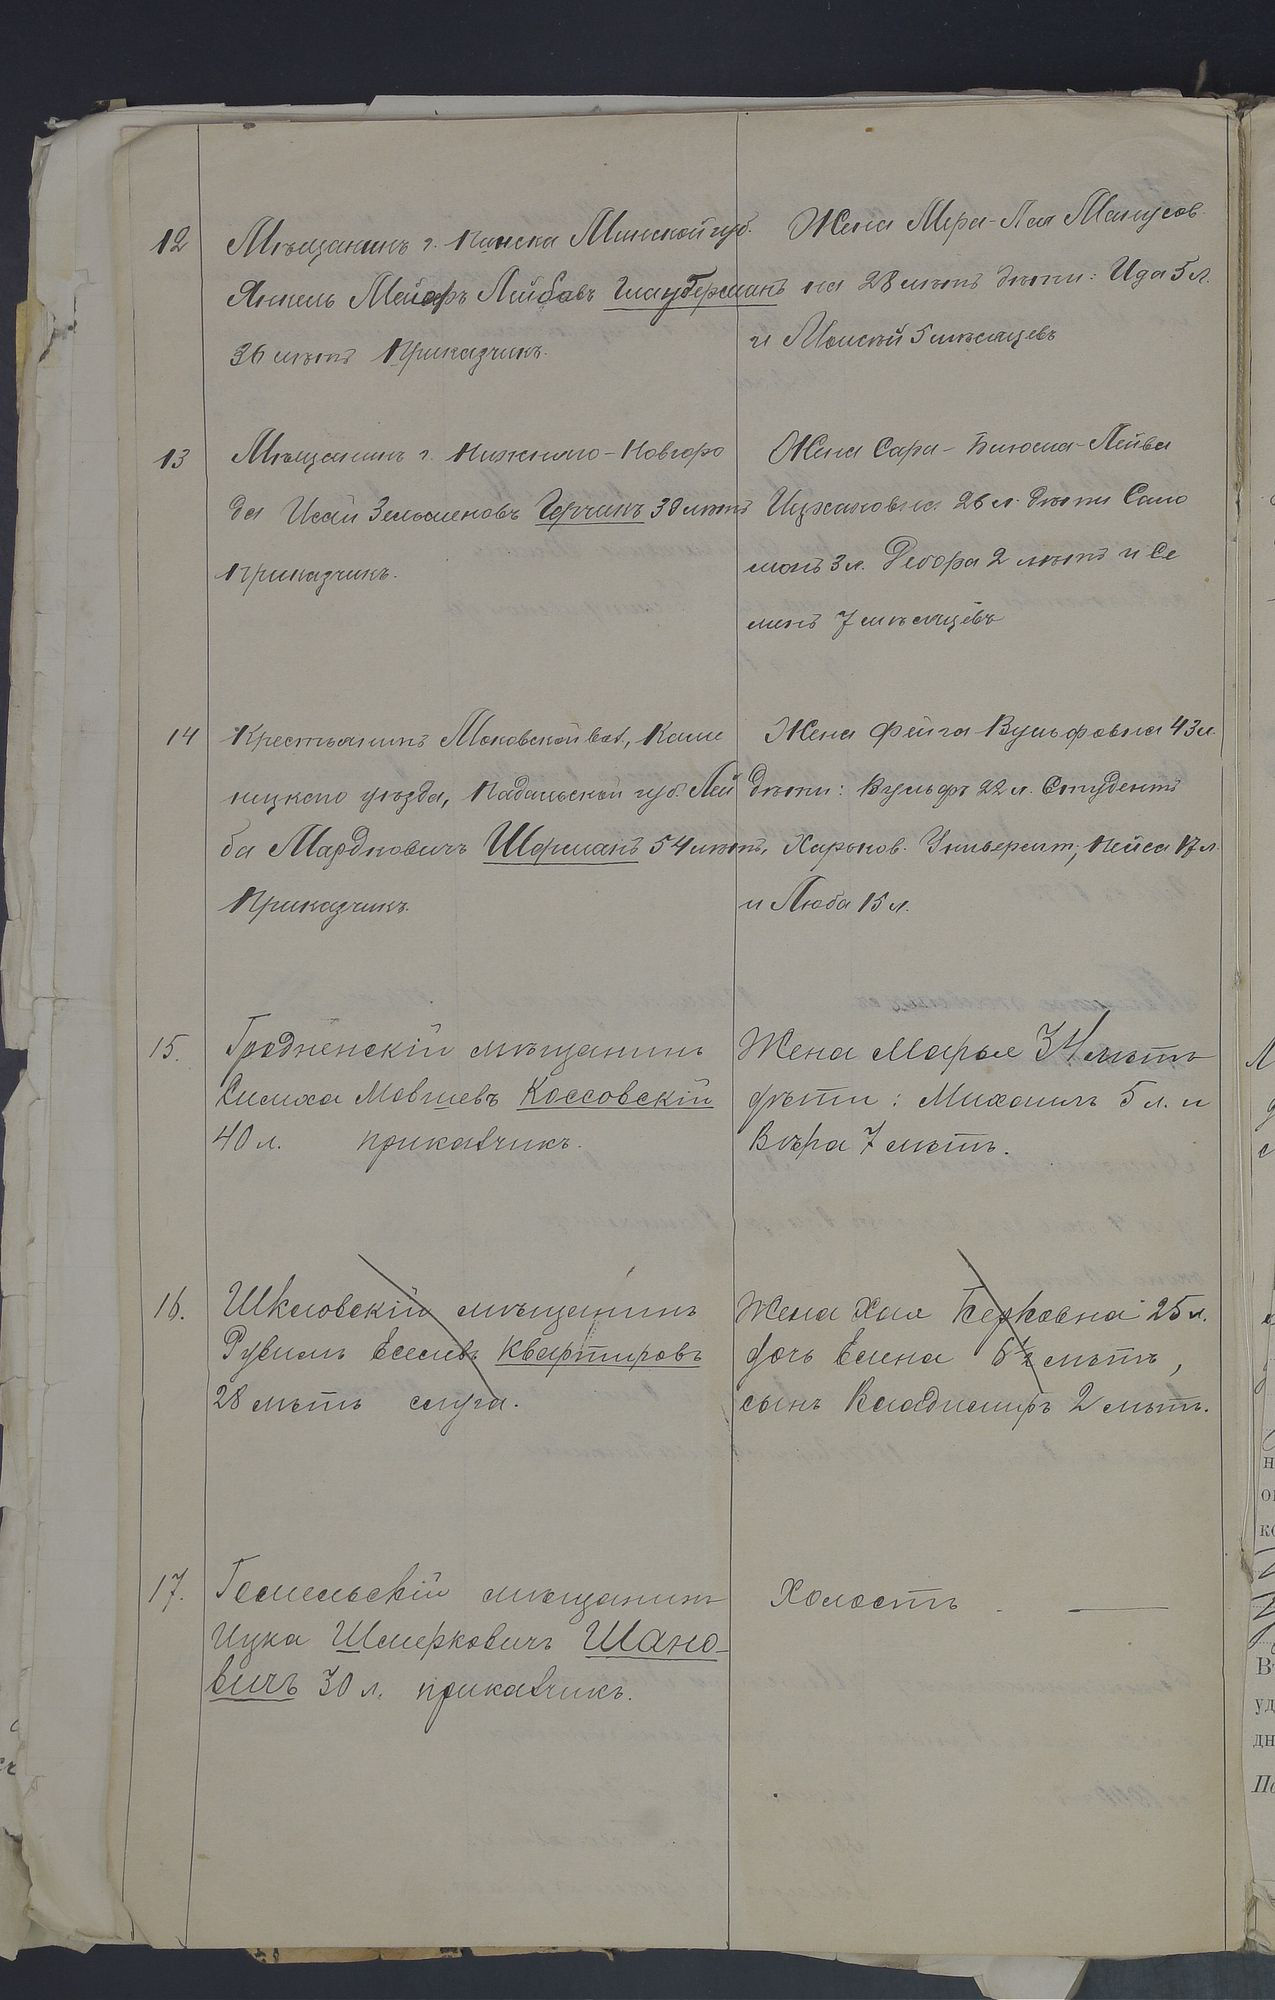 12
Мѣщанинъ г. Пинска Минской губ.
Янкель Меиаръ Лейбовъ Глауберманъ
36 лѣтъ Приказчикъ.
Жена Мера-Лея Манусов-
на 28 лѣтъ дѣти: Ида 5 л.
и Моисей 5 мѣсяцевъ
13
Мѣщанинъ г. Нижняго-Новгоро
да Исай Зельменовъ Горчикъ 30 лѣтъ
Приказчикъ.
Жена Сара-Блюма-Лейва
Ицхаковна 26 л. дѣти Соло
монъ 3 л. Дебора 2 лѣтъ и Се
менъ 7 мѣсяцевъ
14
Крестьянинъ Маковской вол., Каме
ницкаго уѣзда, Подольской губ. Лей
ба Мардковичъ Шерманъ 54 лѣтъ,
Приказчикъ.
Жена Фейга Вульфовна 43 л.
дѣти: Вульфъ 22 л. Студентъ
Харьков. Университ, Нейса 17 л.
и Люба 15 л.
15.
Гродненскій мѣщанинъ
Симха Мовшевъ Коссовскій
40 л. приказчикъ.
Жена Марья 34 лѣтъ
дѣти: Михаилъ 5 л. и
Вѣра 7 лѣтъ.
16.
Шкловскій мѣщанинъ
Рувимъ Еселевъ Квартировъ
28 лѣтъ слуга.
Жена Хая Берковна 25 л.
дочь Елена 6½ лѣтъ,
сынъ Владимиръ 2 лѣтъ.
17.
Гомельскій мѣщанинъ
Ицка Шмерковичъ Шано-
вичъ 30 л. приказчикъ.
Холостъ